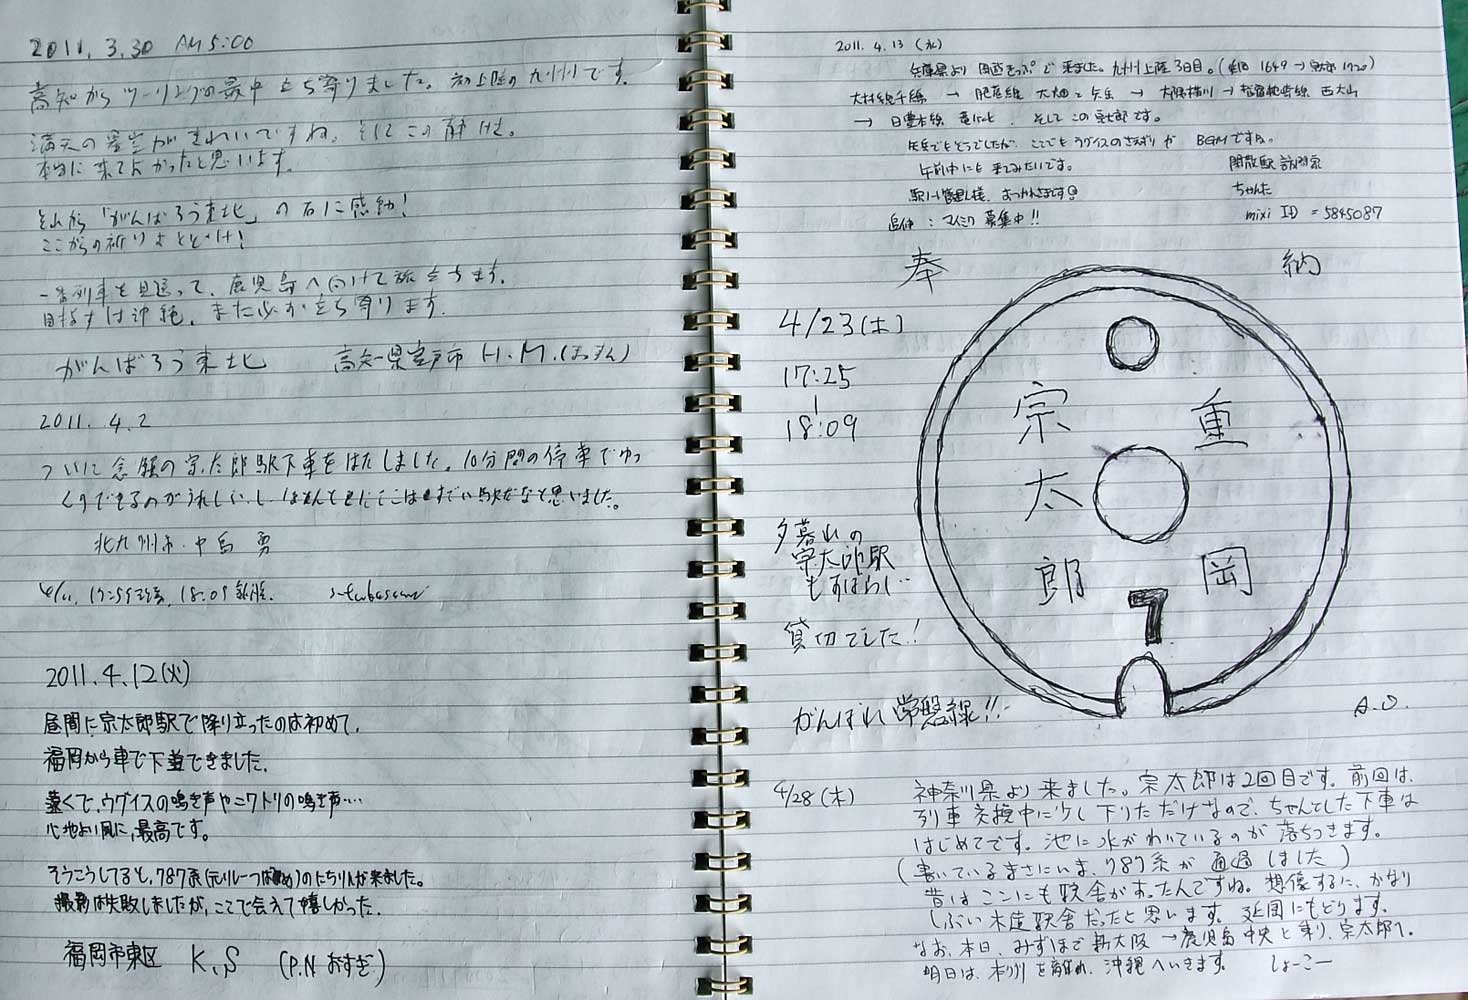 2011.3.30 AM 5:00
高知からツーリングの最中立ち寄りました。初上陸の九州です。
満天の星空がきれいですね。そしてこの静けさ。
本当に来てよかったと思います。
それから「がんばろう東北」の石に感動!
ここからの祈りよとどけ!
一番列車を見送って、鹿児島へ向けて旅立ちます。
目指すは沖縄。また必ず立ち寄ります。
がんばろう東北 高知県室戸市 H.M.
2011.4.2
ついに念願の宗太郎駅下車をはたしました。10分間の停車でゆっ
くりできるのがうれしいし、ほんと
駅だなと思いました。
北九州市・中島 勇
4/11,
18:09
2011.4.12(火)
昼間に宗太郎駅で降り立ったのは初めて。
福岡から車で下道できました。
遠くで、ウグイスの鳴き声やニワトリの鳴き声…
心地よい風に、最高です。
そうこうしてると、787系(元リレーつばめ)のにちりんが来ました。
撮影は失敗しましたが、ここで会えて嬉しかった。
福岡市東区 K.S (P.N おすぎ)
2011.4.13(水)
兵庫県より 関西きっぷで来ました。九州上陸3日目。
→ 肥薩線 大畑と矢岳 → 大隅横川 → 指宿枕崎線 西大山
→ 日豊本線 そしてこの宗太郎です。
矢岳でもそうでしたが、ここでもウグイスのさえずりが BGMですね。
午前中にも来てみたいです。
閑散駅訪問家
駅ノート管理人様、おつかれさまです
ちゃんた
追伸:マイミク募集中!!
mixi ID = 5845087
奉 納
4/23(土)
17:25
|
18:09
宗太郎
重岡
夕暮れの
宗太郎駅
もすばらしい
貸切でした!
がんばれ常磐線!!
A.O.
4/28(木)
神奈川県より来ました。宗太郎は2回目です。前回は、
列車交換中に少し下りただけなので、ちゃんとした下車は
はじめてです。池に水がわいているのが落ちつきます。
(書いているまさにいま、787系が通過しました)
昔はここにも駅舎があったんですね。想像するに、かなり
しぶい木造駅舎だったと思います。延岡にもどります。
なお、本日、みずほで新大阪→鹿児島中央と乗り、宗太郎へ。
明日は、本州を離れ、沖縄へいきます。 しょーこー